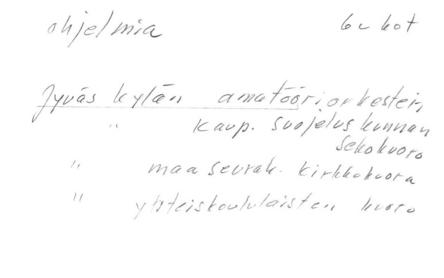 ohjelmia
Jyväskylän amatööriorkesterin
" kaup. suojeluskunnan
sekakuoro
" maaseurak. kirkkokuoro
" yhteiskoululaisten kuoro